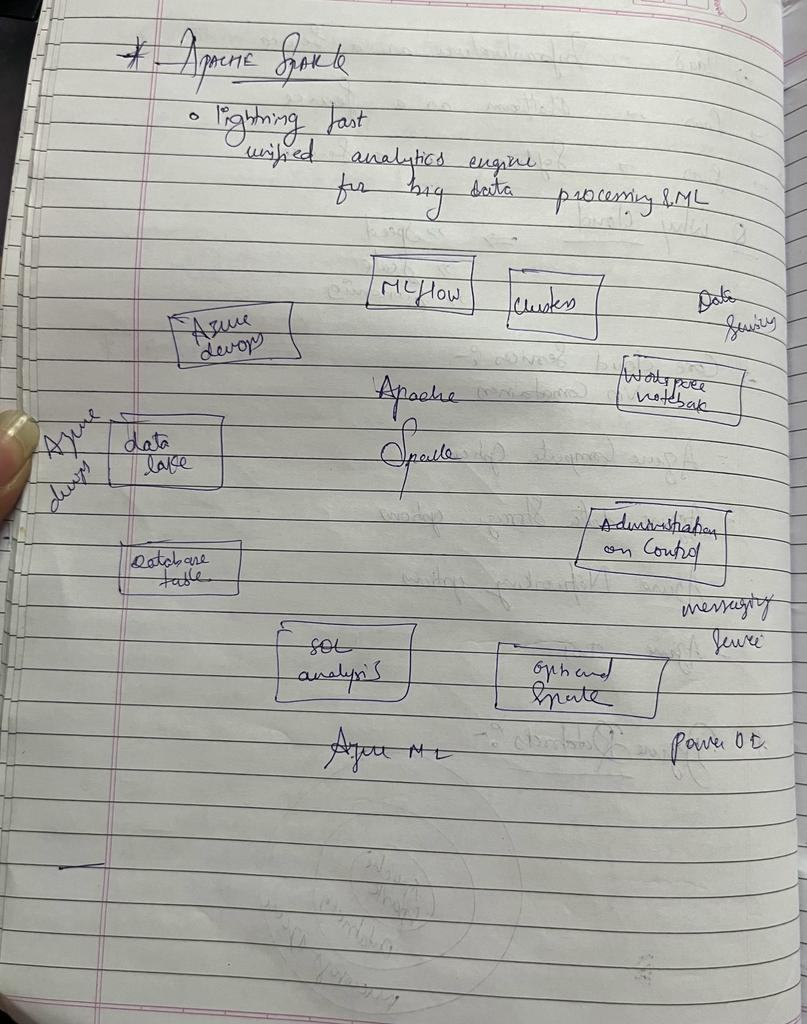 * APACHE Spark
• lightning fast
unified analytics engine
for big data processing & ML
MLflow
Clusters
Data
Azure
devops
Workspace
notebook
Apache
Spark
Azure
devops
data
lake
Administration
on Control
Database
table
messaging
Service
SQL
analysis
Spark
Azure ML
Power